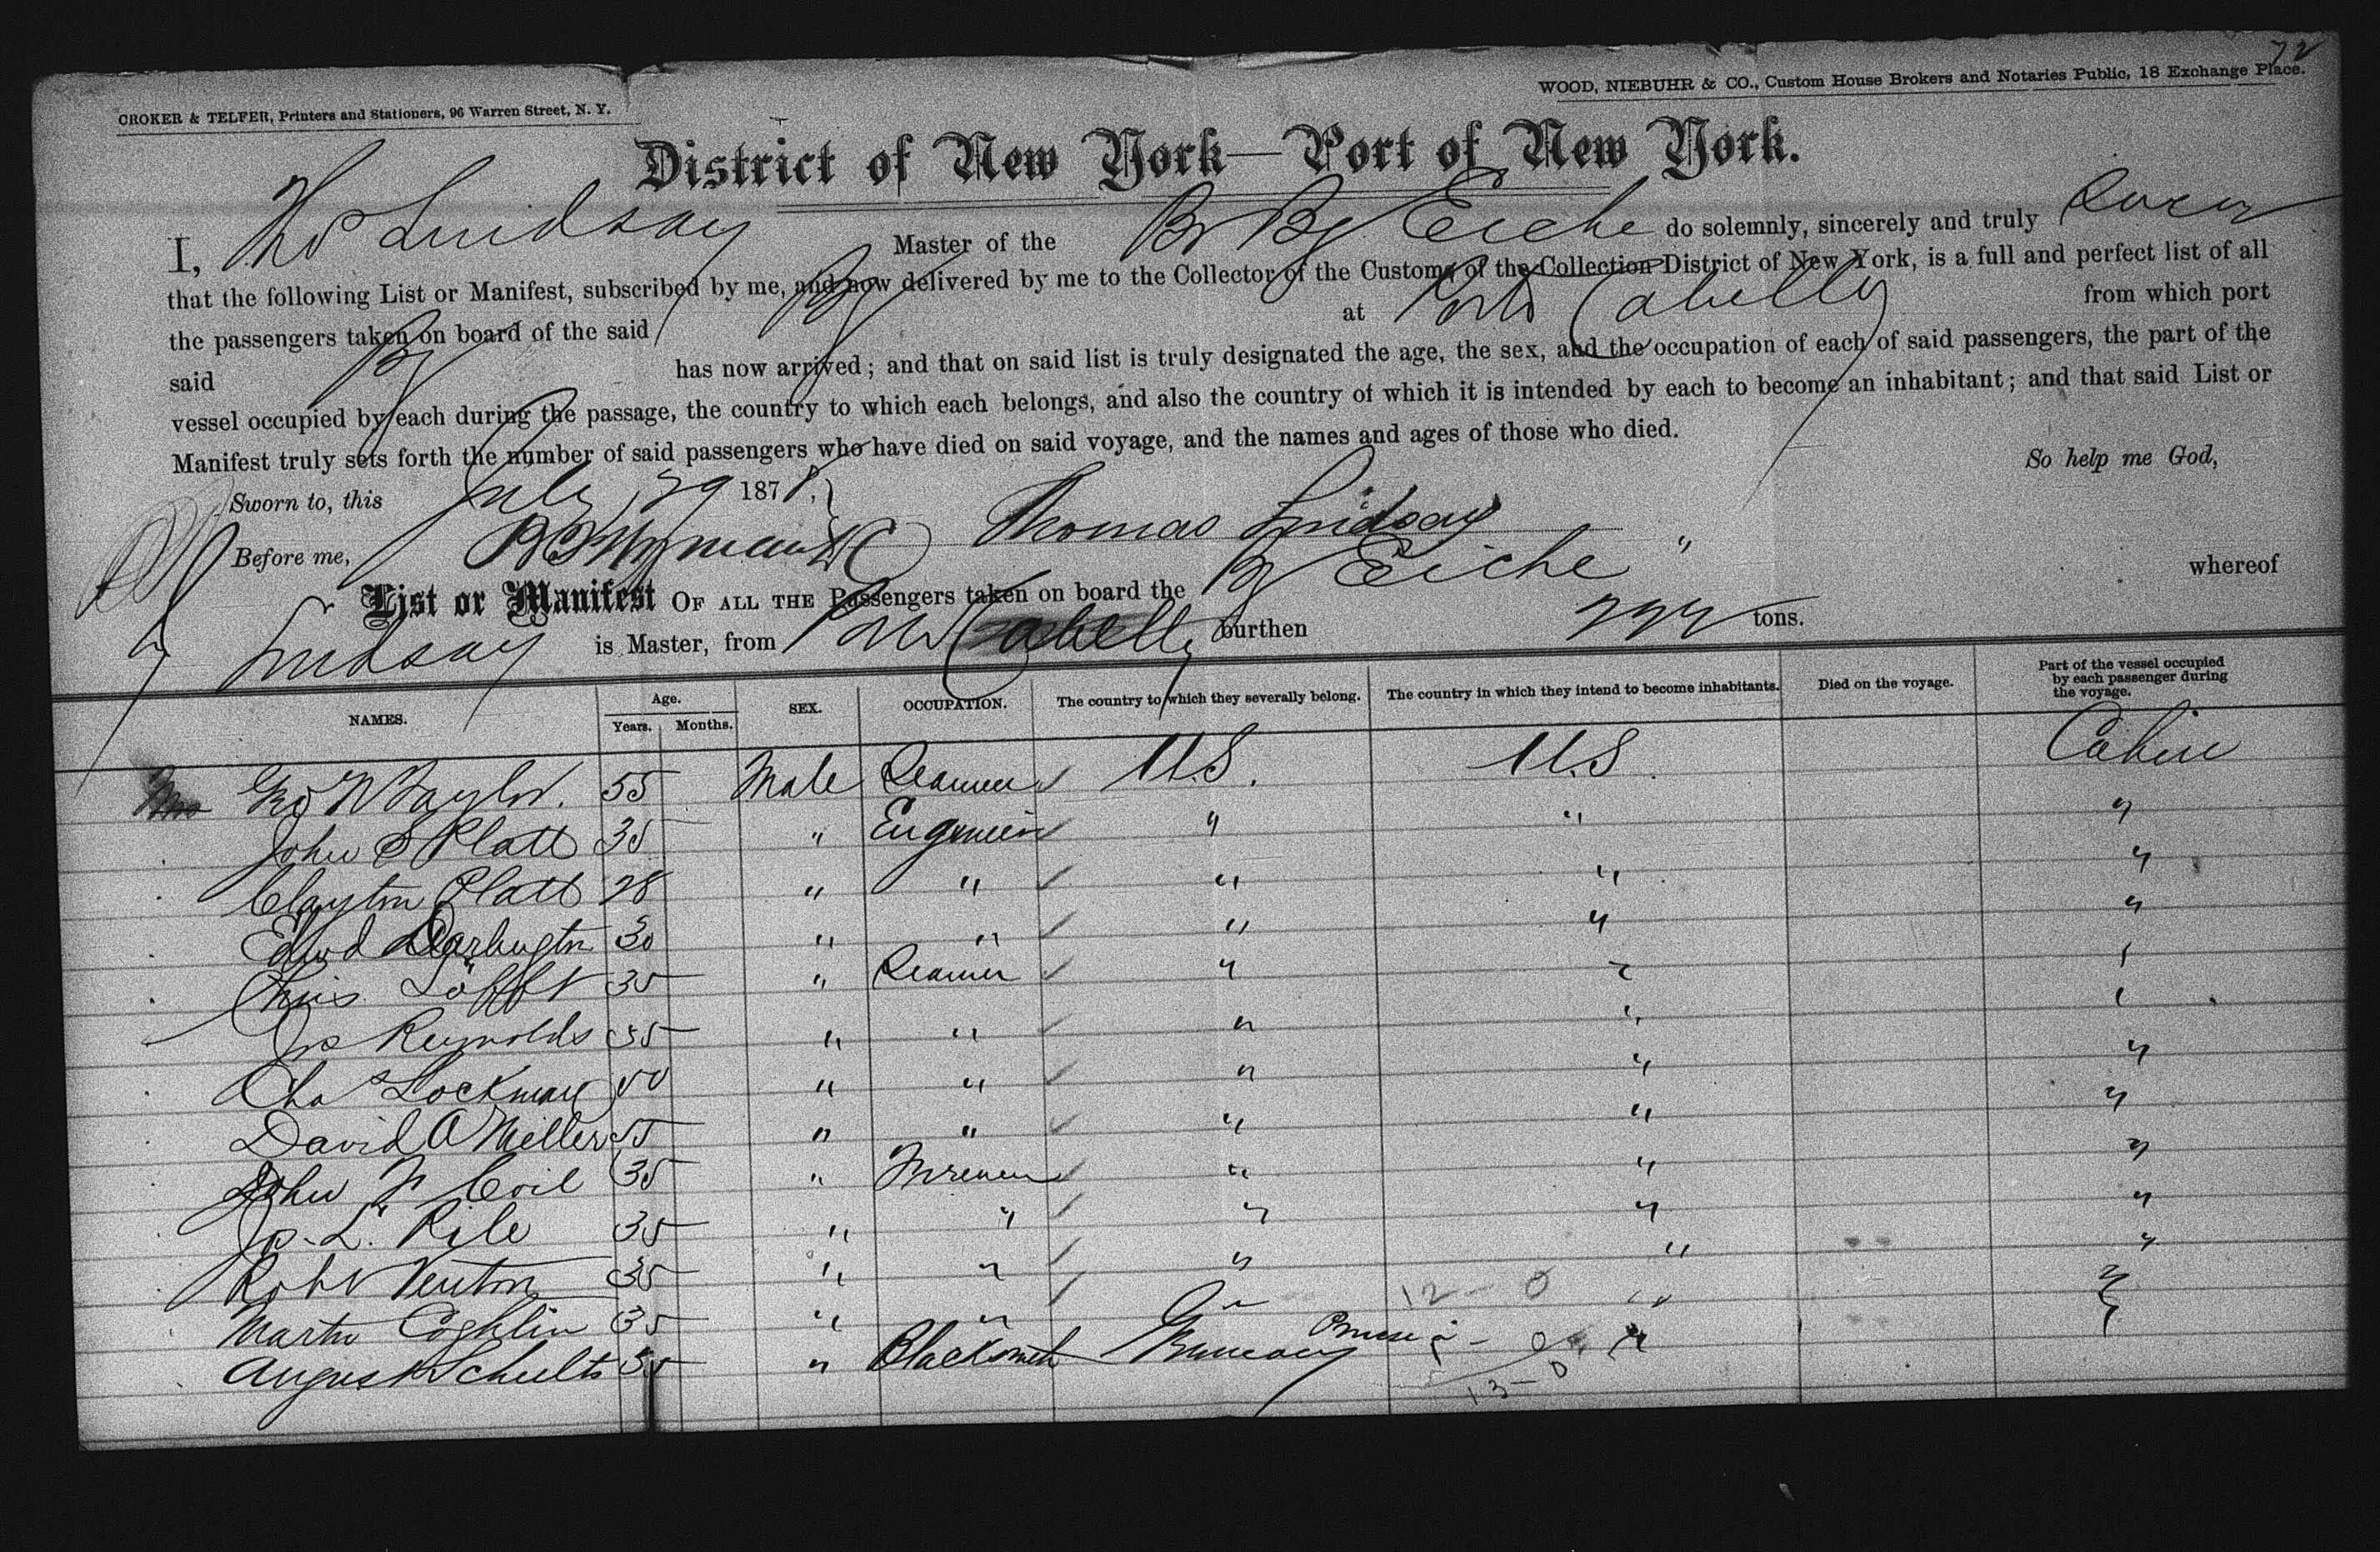 72
CROKER & TELFER, Printers and Stationers, 96 Warren Street, N. Y.
WOOD, NIEBUHR & CO., Custom House Brokers and Notaries Public, 18 Exchange Place.
District of New York—Port of New York.
I, Thos Lindsay Master of the Br Bg Eiche do solemnly, sincerely and truly swear
that the following List or Manifest, subscribed by me, and now delivered by me to the Collector of the Customs of the Collection District of New York, is a full and perfect list of all
the passengers taken on board of the said Bg at Porto Cabello from which port
said Bg has now arrived; and that on said list is truly designated the age, the sex, and the occupation of each of said passengers, the part of the
vessel occupied by each during the passage, the country to which each belongs, and also the country of which it is intended by each to become an inhabitant; and that said List or
Manifest truly sets forth the number of said passengers who have died on said voyage, and the names and ages of those who died.
So help me God,
Sworn to, this July 29 1878.
Before me, Thomas Lindsay
List or Manifest OF ALL THE Passengers taken on board the Bg Eiche " whereof
Lindsay is Master, from Porto Cabello burthen tons.
NAMES. Age. Years. Months. SEX. OCCUPATION. The country to which they severally belong. The country in which they intend to become inhabitants. Died on the voyage. Part of the vessel occupied by each passenger during the voyage.
Taylor. 55 Male Seamen U.S. U.S. Cabin
John S Platt 35 " Engineer " " "
Clayton Platt 28 " " " " "
Edwd Darlington 30 " " " " "
Chris Löfft 35 " Seamen " " "
Jos Reynolds 35 " " " " "
Chas Lockman " " " " "
David A Miller 55 " " " " "
John F Coil 35 " Firemen " " "
Jos. L. Rile 35 " " " " "
Robt Venton 35 " " " " "
Martin Coghlin 35 " " " " "
August Schults 35 " Blacksmith Germany Prussia " "
12 - 0
13 - 0